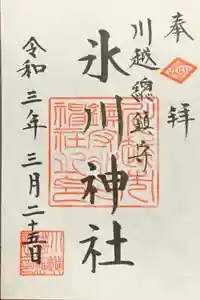 奉拝
川越總鎮守
氷川神社
令和三年三月二十五日